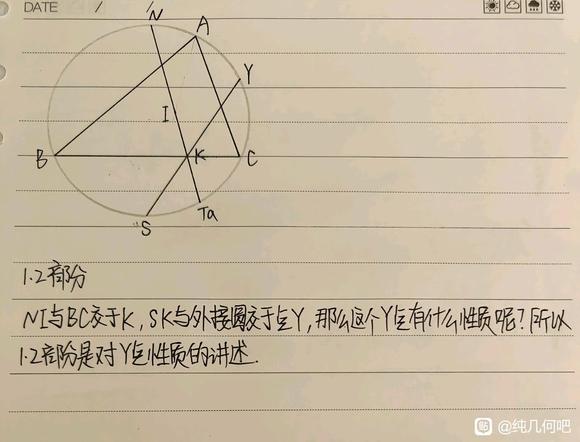 DATE / /
N
A
Y
I
B
K
C
S
Ta
1.2部分
NI与BC交于K,SK与外接圆交于点Y,那么这个Y点有什么性质呢?所以
1.2部分是对Y点性质的讲述.
贴 @纯几何吧